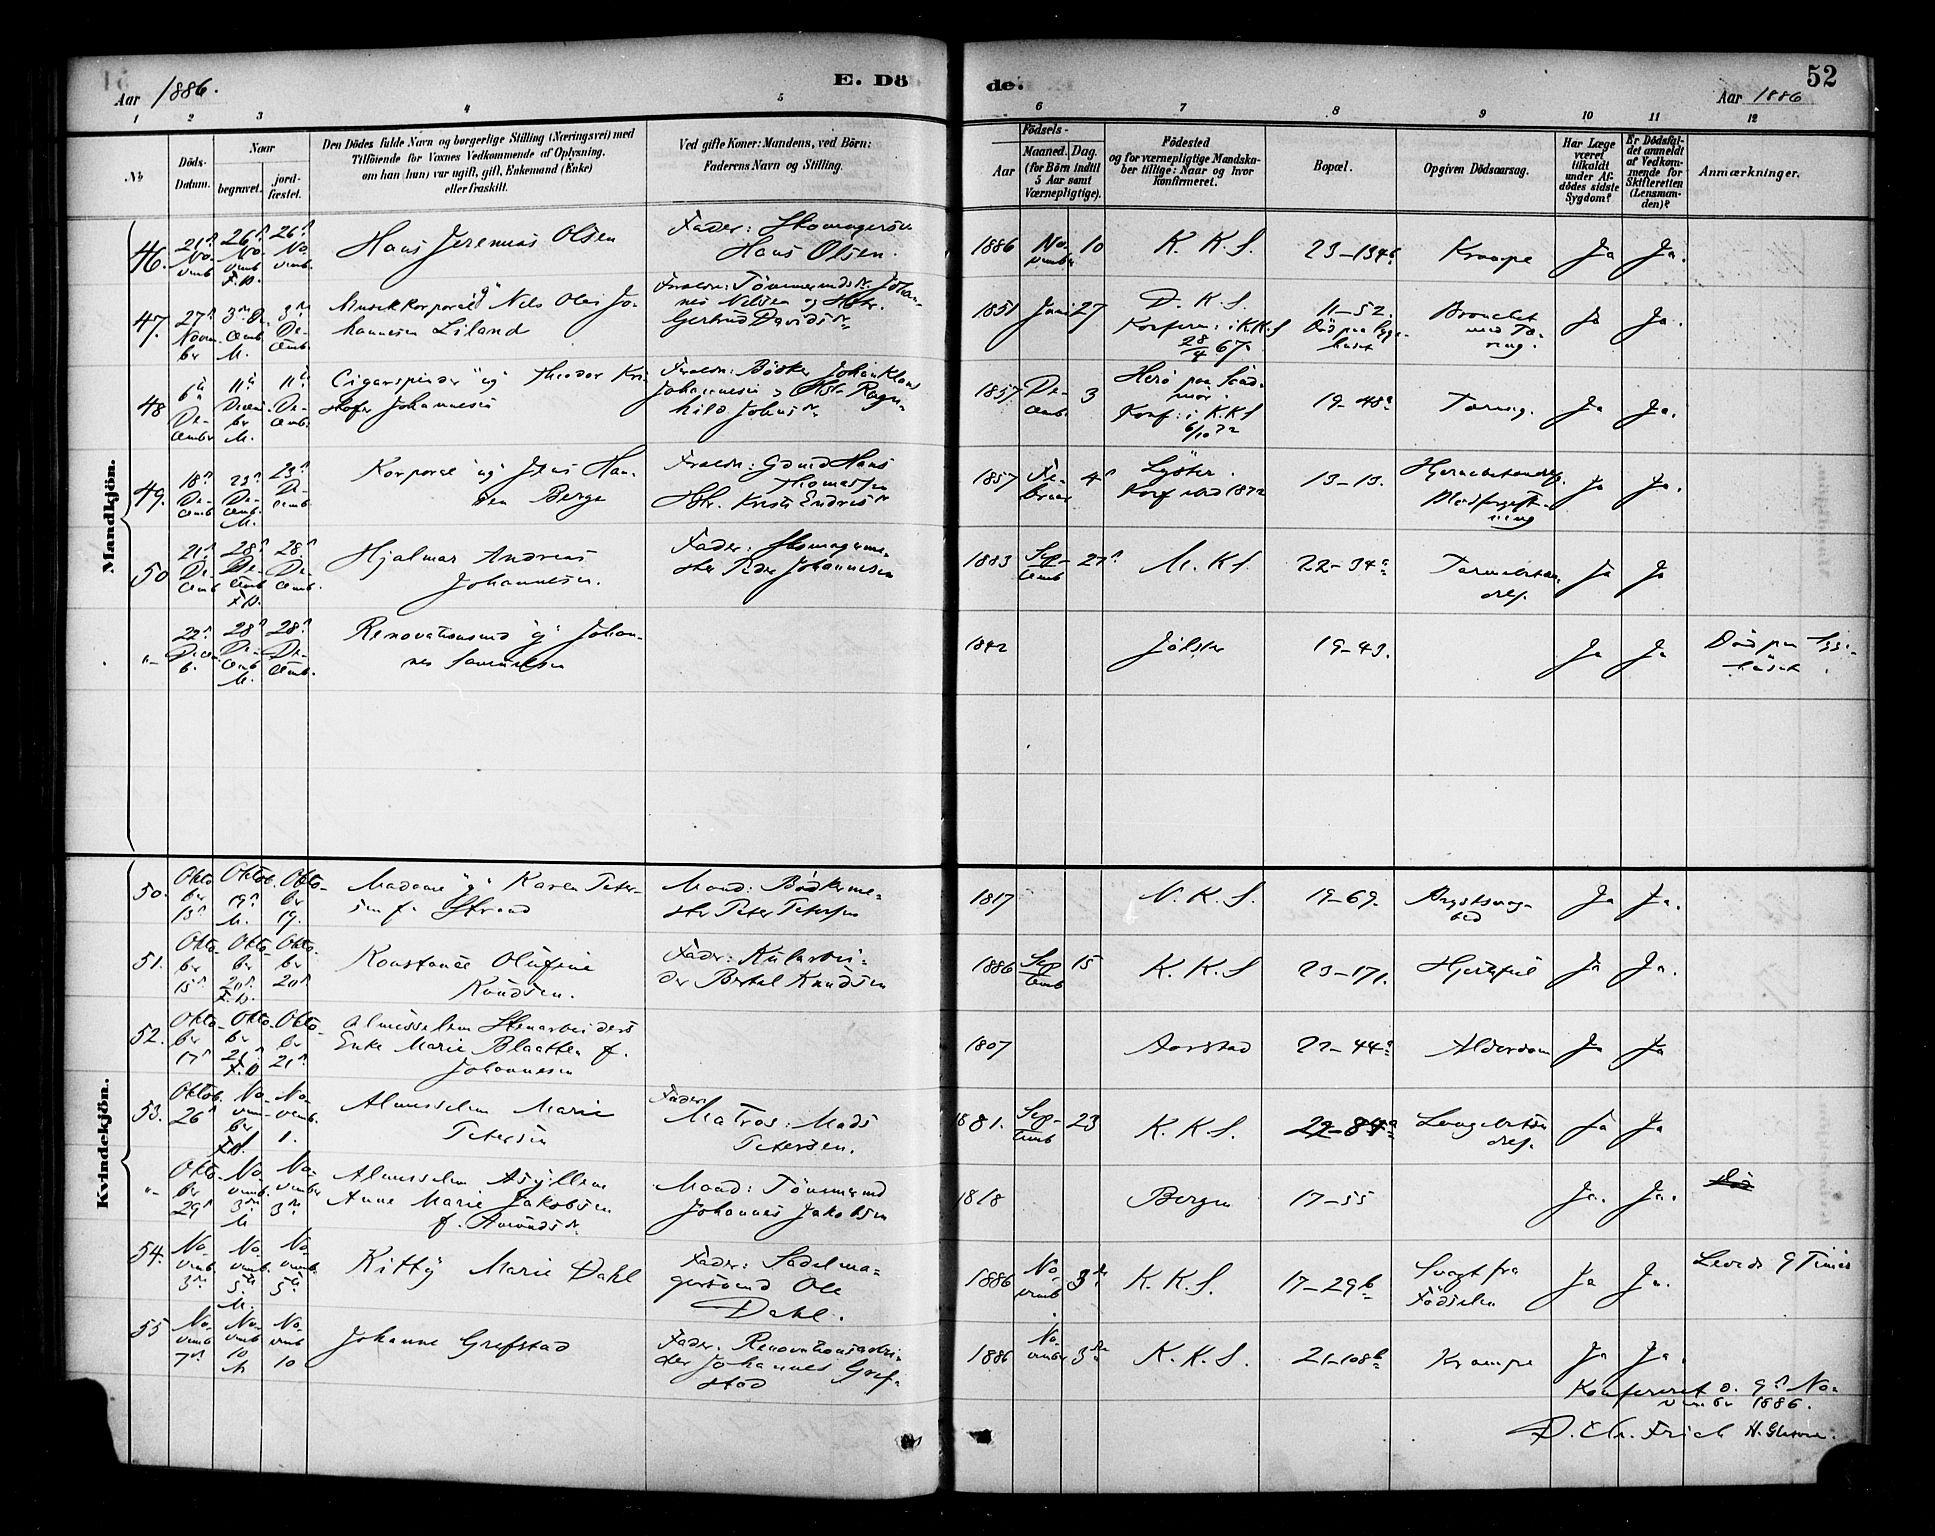 Aar 1886.
E. Dö
de.
52
Aar 1886
1 2 3 4 5 6 7 8 9 10 11 12
No
Döds-
Datum.
Naar
begravet.
jord-
fæstet.
Den Dödes fulde Navn og borgerlige Stilling (Næringsvei) med
Tilföiende for Voxnes Vedkommende af Oplysning,
om han (hun) var ugift, gift, Enkemand (Enke)
eller fraskilt.
Ved gifte Koner: Mandens, ved Börn:
Faderens Navn og Stilling.
Födsels-
Aar
Maaned. Dag.
(for Börn indtil
5 Aar samt
Værnepligtige).
Födested
og for værnepligtige Mandska-
ber tillige: Naar og hvor
konfirmeret.
Bopæl.
Opgiven Dödsaarsag.
Har Læge
været
tilkaldt
under Af-
dödes sidste
Sygdom?
Er Dödsfal-
det anmeldt
af Vedkom-
mende for
Skifteretten
(Lensman-
den)?
Anmærkninger.
Mandkjön.
46.
21
No
vemb
26
No
vemb
F.P.
26
No
vemb.
Hans Jeremias Olsen
Fader:
Hans Olsen.
1886 No
vember 10
K. K. S.
23-134b
Krampe
Ja Ja.
47.
27
Novem
ber
3 De
cemb
M.
3
De-
cemb
Musikkorporal "g" Nils Olai Jo-
hannesen Liland
Forældre: Johan-
nes Nilsen og Hstr.
Gertrud Davidsdr
1851 Juni 27
D. K. S.
Konferm: i K.K.S
28/4 67
11-52.
Död paa Syge-
huset
Bronchit
med Tæ-
ring.
Ja Ja.
48
6
De-
cember
11
Decem-
ber
M.
11
De-
cemb.
"ug" Theodor Kri-
stofer Johannesen
Forældre: Bödker Johan Klaus
Johannesen & Hstr Ragn-
hild Johnsdr.
1857 De-
cemb 3
Herö paa Sönd-
mör.
Konf: i K.K.S
6/10 72
19-48a
Tæring.
Ja Ja.
49.
18
De-
cemb
23
De-
cemb.
M.
23
De-
cemb
Korporal "ug" Jens Han-
sen Berge
Forældre: Gdmd Hans
Thomassen
Hstr. Kristi Endresdr
1857 Fe-
bruar 4
Lyster.
Konf ibid 1872
13-13.
Hjernebetændelse
Blodforgift-
ning
Ja Ja.
50
21
De-
cemb
28
De-
cemb
F.P.
28.
De-
cemb.
Hjalmar Andreas
Johannesen.
Fader: Skomagerme-
ster Peder Johannesen
1883 Sep-
temb 27
M. K. S.
22-34a
Tarmbetæn-
delse.
Ja Ja
"-
22
Decem
b.
28
De-
cemb
M.
28.
De-
cemb.
Renovationsmd "g" Johan-
nes Samuelsen
1842
Jölster
19-43.
Ja Ja
Död paa Syge-
huset.
Kvindekjön.
50.
Okto
ber
13
Oktob.
19
M.
Okto-
ber
19.
Madame "g" Karen Peter-
sen f. Strand
Mand: Bödkerme-
ster Peter Petersen
1817
N. K. S.
19-69.
Ja Ja.
51.
Okto-
ber
15
Okto-
ber
20
F.P.
Okto-
ber
20
Konstance Olufine
Knudsen.
Fader: Kularbei-
der Bertel Knudsen
1886 Sep
temb 15
K. K. S
23-171.
Hjertefeil
Ja Ja.
52.
Okto-
ber
17
Okto-
ber
21
F.P
Okto-
ber
21
Almisselem Stenarbeiders
Enke Marie Blaatten f.
Johannesen
1807
Aarstad
22-44a
Alderdom
Ja Ja
53.
Oktob.
26
No-
vem-
ber
No-
vemb.
1.
Almisselem Marie
Petersen
Fader:
Matros: Mads
Petersen.
1881. Sep-
temb 23
K. K. S.
Lungebetæn
delse.
Ja Ja
"-
Okto-
ber
29
No-
vemb.
3
M.
No-
vember
3
Almisselem Asyllem
Anne Marie Jakobsen
f. Amundsdr.
Mand: Tömmermd
Johannes Jakobsen
1818
Bergen
17-55
Ja. Ja.
54.
No-
vemb.
3
No-
vemb.
5
M.
No-
vemb.
5
Kitty Marie Dahl
Fader: Sadelma-
gersvend Ole
Dahl.
1886 No-
vemb. 3
K. K. S.
17-29b
Svagt fra
Födselen
Ja Ja.
Levede 9 Timer
55
No-
vemb
7
No-
vemb
10
M
No-
vemb
10
Johanne Grefstad
Fader: Renovationsarbei-
der Johannes Gref-
stad
1886 No-
vember 3
K. K. S.
21-108b
Krampe
Ja Ja.
Konfereret d. 9 No-
vember 1886.
D. Chr. Frich